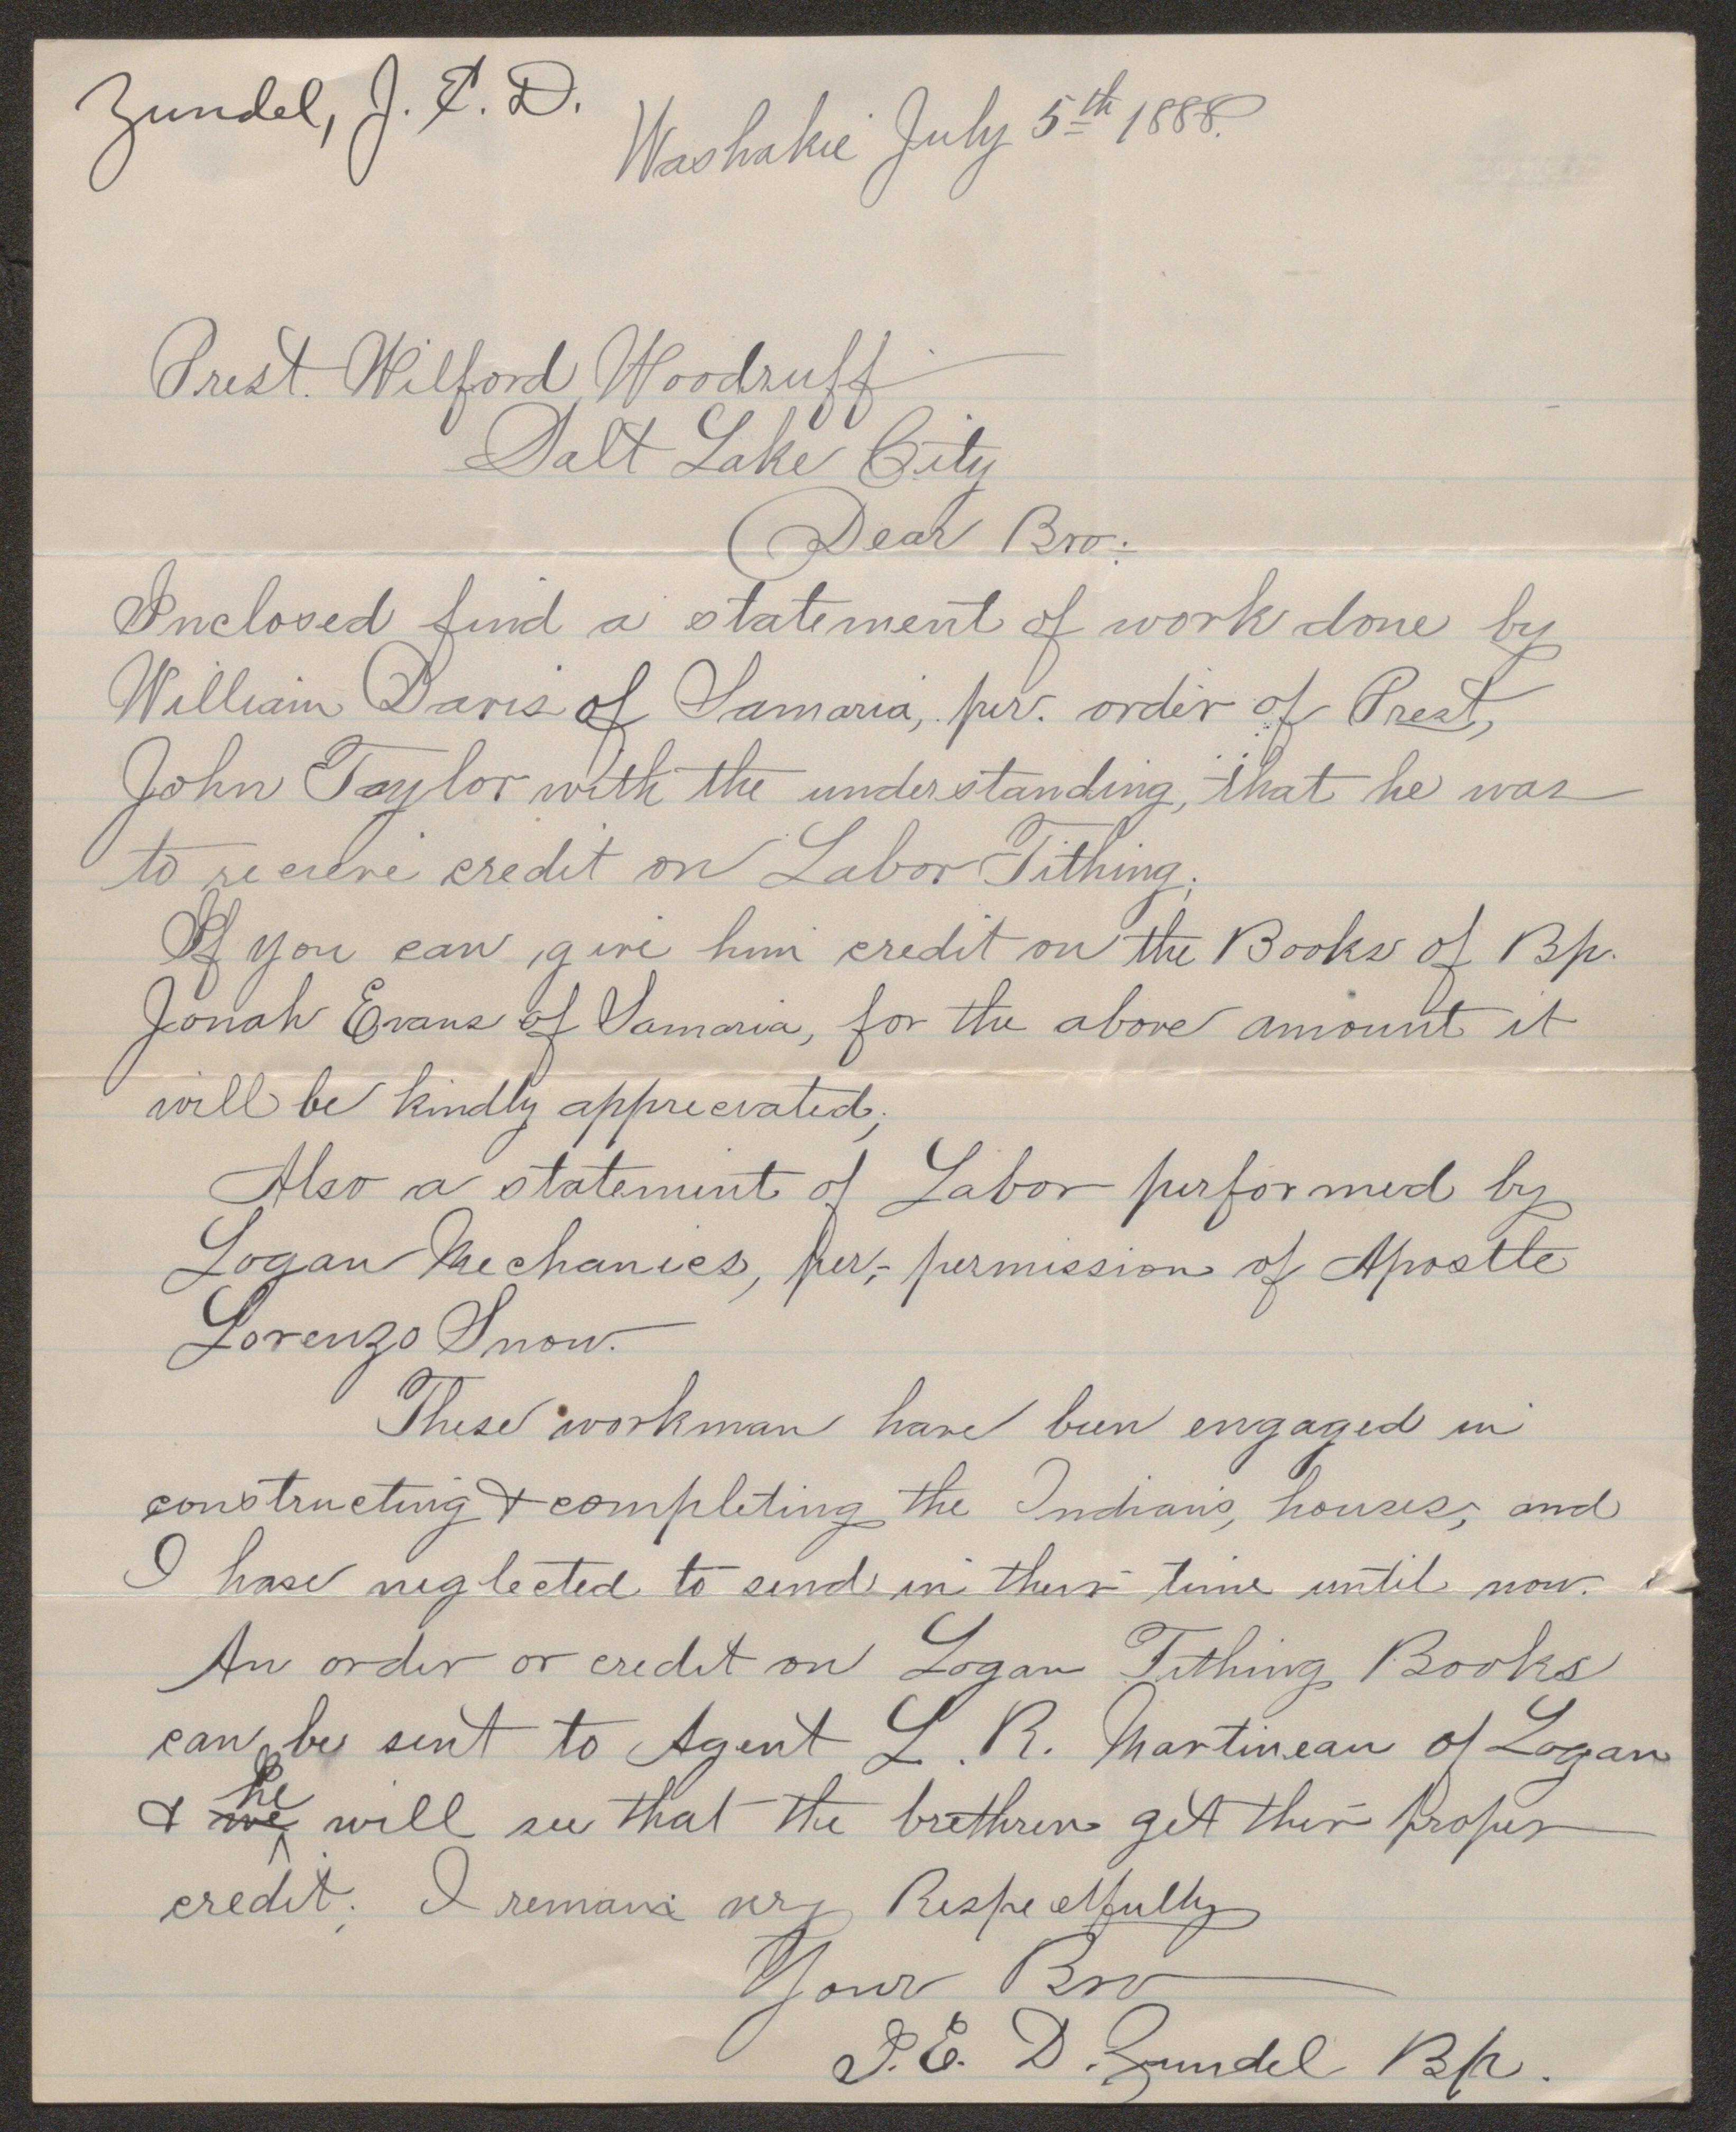 Zundel, J. E. D.
Washakie July 5th 1888.
Prest. Wilford Woodruff
Salt Lake City
Dear Bro:
Inclosed find a statement of work done by
William Davis of Samaria, per. order of Prest,
John Taylor with the understanding, that he was
to recieve credit on Labor Tithing;
If you can, give him credit on the Books of Bp.
Jonah Evans of Samaria, for the above amount it
will be kindly appreciated;
Also a statement of Labor performed by
Logan Mechanics, per,- permission of Apostle
Lorenzo Snow.
These workman have been engaged in
constructing & completing the Indians, houses, and
I have neglected to send in their time until now.
An order or credit on Logan Tithing Books
can be sent to Agent L. R. Martineau of Logan
& we he will see that the brethren get their proper
credit; I remain very Respectfully
Your Bro
I. E. D. Zundel Bp.